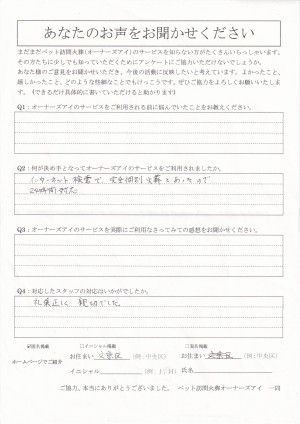 あなたのお声をお聞かせください
まだまだペット訪問火葬(オーナーズアイ)のサービスを知らない方がたくさんいらっしゃいます。
その方たちに少しでも知っていただくためにアンケートにご協力いただけないでしょうか。
あなた様のご意見をお聞かせいただき、今後の活動に反映したいと考えています。よかったこと、
嬉しかったこと、どのような些細なことでもけっこうです。ぜひご協力をよろしくお願いいたしま
す。(できるだけ具体的に書いていただけると助かります)
Q1:オーナーズアイのサービスをご利用される前に悩んでいたことをお教えください。
Q2:何が決め手となってオーナーズアイのサービスをご利用されましたか。
インターネット検索で完全個別火葬とあったので
24時間対応
Q3:オーナーズアイのサービスを実際にご利用なさってみての感想をお聞かせください。
Q4:対応したスタッフの対応はいかがでしたか。
礼儀正しく親切でした
□イニシャル掲載
ホームページでご紹介
お住まい 文京区 (例:中央区)
お住まい 文京区 (例:中央区)
イニシャル (例:J;H)
氏名
ご協力、本当にありがとうございました。 ペット訪問火葬オーナーズアイ 一同